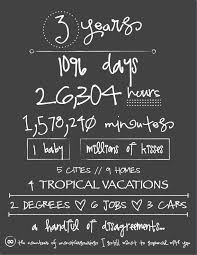 3 years
1096 days
26,304 hours
1,578,240 minutes
1 baby millions of kisses
5 CITIES // 9 HOMES
4 TROPICAL VACATIONS
2 DEGREES ♡ 6 JOBS ♡ 3 CARS
a handful of disagreements...
∞ the number of I still want to spend with you